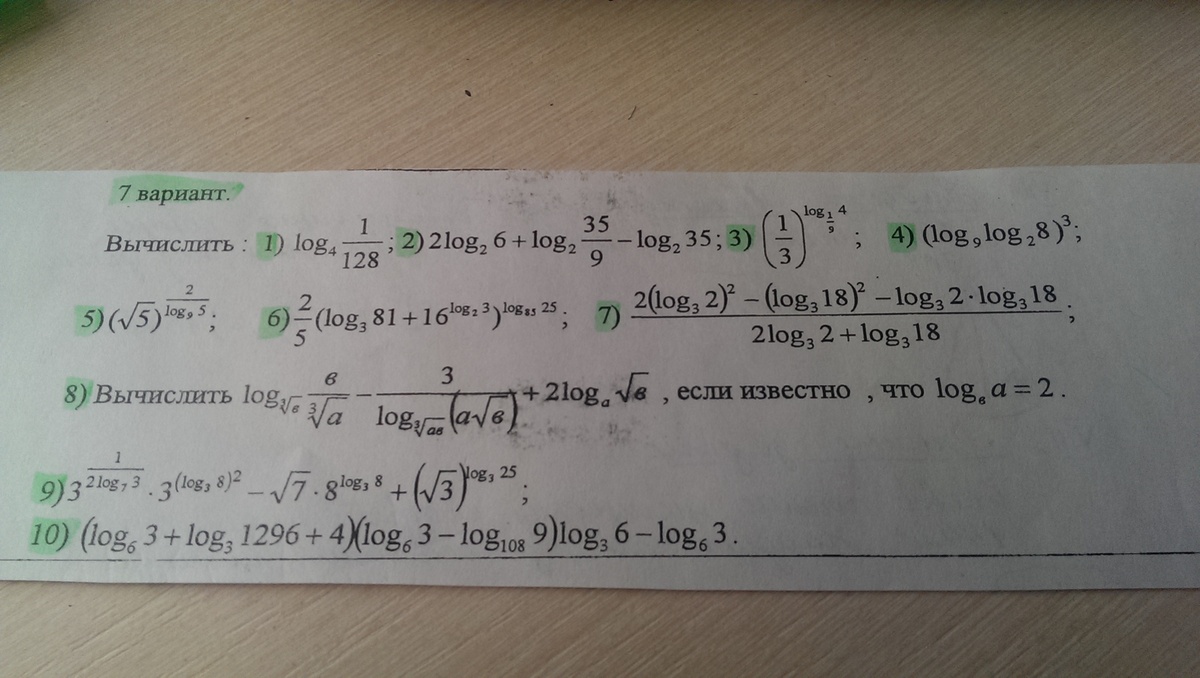 7 вариант.
Вычислить : 1) log₄ 1/128 ; 2) 2log₂ 6 + log₂ 35/9 − log₂ 35 ; 3) (1/3)^(log_(1/9) 4) ; 4) (log₉ log₂ 8)³ ;
5) (√5)^(2/(log₉ 5)) ; 6) 2/5 (log₃ 81 + 16^(log₂ 3))^(log₈₅ 25) ; 7) (2(log₃ 2)² − (log₃ 18)² − log₃ 2 · log₃ 18)/(2log₃ 2 + log₃ 18) ;
8) Вычислить log_(∛в) в/∛а − 3/(log_(∛ав) (а√в)) + 2log_а √в , если известно , что log_в а = 2 .
9) 3^(1/(2log₇ 3)) · 3^((log₃ 8)2) − √7 · 8^(log₃ 8) + (√3)^(log₃ 25) ;
10) (log₆ 3 + log₃ 1296 + 4)(log₆ 3 − log₁₀₈ 9)log₃ 6 − log₆ 3 .